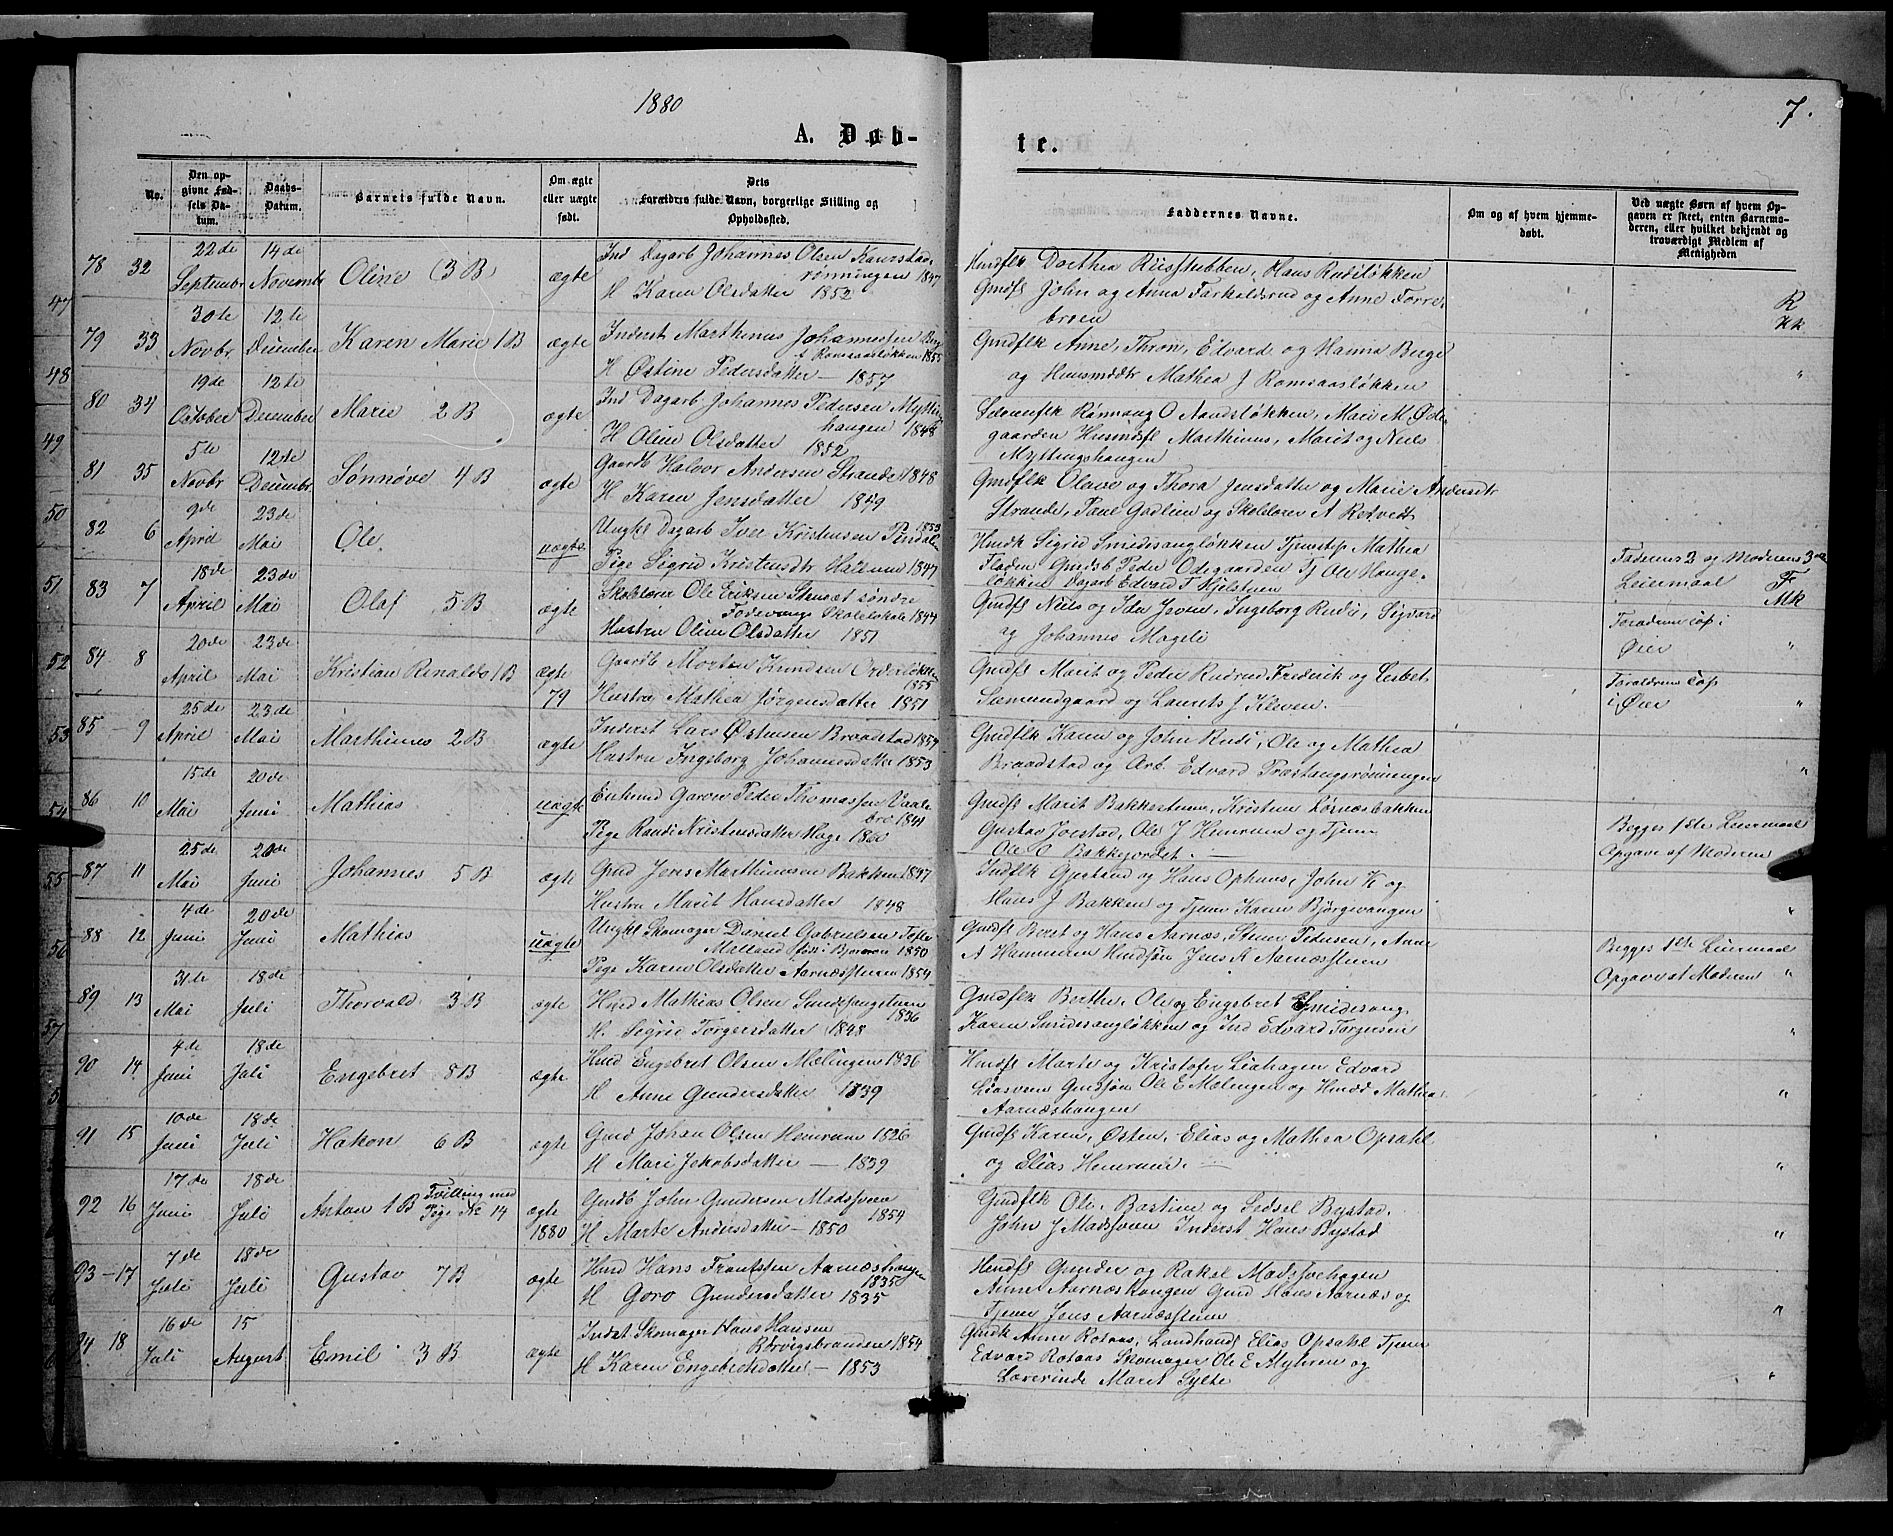 1880
7.
A. Døb-
te.
No.
Den opgivne Fødsels Datum.
Daabs-Datum.
Barnets fulde Navn.
Om ægte eller uægte født.
Dets Forældres fulde Navn, borgerlige Stilling og Opholdssted.
Faddernes Navne.
Om og af hvem hjemmedøbt.
Ved uægte Børn af hvem Opgaven er skeet, enten Barnemoderen, eller hvilket bekjendt og troværdigt Medlem af Menigheden
78 32 22de Septembr 14de Novembr Oline (3 B) ægte
Ind Dagarb Johannes Olsen Kanrstad
rønningen 1847
H Karen Olsdatter 1852
Dorthea Riisstubben, Hans Rudiløkken
John og Anna Farkaldsrud og Anne Forre-
broen
R
Kk
79 33 30te Novbr 12te December Karen Marie 1 B ægte
Inderst Marthinus Johannessen Berg
f Romsaasløkken 1855
H Østine Pedersdatter – 1857
Gmdflk Anne, Thron, Edvard og Hanna Berge
og Huusmdtr Mathea J Romsaasløkken
80 34 19de October 12te December Marie 2 B ægte
Ind Dagarb Johannes Pedersen Mytting
haugen 1848
H Oline Olsdatter 1852
Rønnaug O Aandsløkken, Mari M. Øde-
gaarden Husmdfl Marthinus, Marit og Niels
Myttingshaugen
81 35 5te Novbr 12te Decembr. Sønnøve 4 B ægte
Gaardb Halvor Andersen Strande 1848
H Karen Jensdatter 1849
Gmdflk Olave og Thora Jensdatter og Marie Andersdtr
Strande, Paul Gadlien og Skolelærer A Retvedt
82 6 9de April 23de Mai Ole uægte
Ungkl Dagarb Iver Kristensen Pindalen 1853
Pige Sigrid Kristensdtr Hallum 1847
Hmdk Sigrid Smidesangløkken Tjenstep Mathea
Fladen Gmdsb Peder Odegaarden Tj Ole Hauge-
løkken Dagarb Edvard T Kjilstuen
Faderens 2 og Moderens 3de
Leiermaal F
Mk
83 7 18de April 23de Mai Olaf 5 B ægte
Skolelærer Ole Eriksen Stensæt søndre
Fodevangs Skolelokale 1844
Hustru Oline Olsdatter 1851
Gmdfk Niels og Ida Joven, Ingeborg Rudi, Sigvard
og Johannes Mageli
Forældrene cop i
Øier
84 8 20de April 23de Mai Kristian Renaldo 1 B ægte 79
Gaardb Morten Knudsen Ordersløkken
1855
Hustru Mathea Jørgensdatter 1851
Gmdfk Marit og Peder Rudrud Frederik og Lisbet
Sæmundgaard og Laurets J Kleven.
Forældrene cop
i Øier
85 9 25de April 23de Mai Marthinus 2 B ægte
Inderst Lars Østensen Braadstad 1854
Hustru Ingeborg Johannesdatter 1853
Gmdflk Karen og John Rudi, Ole og Mathea
Braadstad og Arb. Edvard Præstangsrønningen
86 10 15de Mai 20de Juni Mathias uægte
Enkmd Garver Peder Thomassen Vaale
bro 1841
Pige Randi Kristensdatter Hage 1860
Gmdfk Marit Bakkestuen, Kristian Lørnæsbakken
Gustav Jorstad, Ole J Hemrum og Tjener
Ole O Bakkejordet.
Begges 1ste Leiermaal
Opgave af Moderen
87 11 25de Mai 20de Juni Johannes 5 B ægte
Gmd Jens Marthinusen Bakken 1847
Hustru Marit Hansdatter 1848
Indflk Gjertrud og Hans Ophuus, John K og
Hans J Bakken og Tjener Karen Bjørgevangen
88 12 4de Juni 20de Juni Mathias uægte
Ungkl Skomager Daniel Gabrielsen Tofte
1850
Pige Karen Olsdatter Aarnæsstuen 1854
Gmdfk Beret og Hans Aarnæs, Stener Pedersen, Anne
A Hammeren Hmdsøn Jens K Aarnæsstuen
Begges 1ste Leiermaal
Opgave af Moderen
89 13 31te Mai 18de Juli Thorvald 3 B ægte
Hmd Mathias Olsen Smidesangstuen
1836
H. Sigrid Torgersdatter 1848
Gmdflk Berthe, Ole og Engebret Smidesang,
Karen Smidesangløkken og Ind Edvard Torgersen
90 14 4de Juni 18de Juli Engebret 8 B ægte
Hmd Engebret Olsen Mælingen 1836
H Anne Gundersdatter 1839
Hmdfk Marte og Kristofer Liehagen Edvard
Liesveen Gmdsøn Ole E Melingen og Hmdd Mathea
Aarnæshaugen
91 15 10de Juni 18de Juli Hakon 6 B ægte
Gmd Johan Olsen Hemrum 1826
H Mari Jakobsdatter – 1839
Gmdfk Karen, Østen, Elias og Mathea Opsahl
og Elias Hemrum.
92 16 17de Juni 18de Juli Anton 1 B Tvilling med
Pige No 14 ægte 1880
Gmdb John Gundersen Madssveen
1854
H Marte Andersdatter – 1850
Gmdflk Ole, Bastian og Sidsel Bystad,
John J Madssveen Inderst Hans Bystad
93 17 7de Juli 18de Juli Gustav 7 B ægte
Hmd Hans Frantzen Aarnæshaugen
1835
H Goro Gundersdatter 1835
Hmdfk Gunder og Rakel Madssvehagen
Anne Aarnæshaugen Gmd Hans Aarnæs og
Tjener Jens Aarnæsstuen
94 18 16de Juli 15 August Emil 3 B ægte
Indst Skomager Hans Hansen
Rørvigsbraaden 1854
H Karen Engebretsdatter – 1853
Gmdk Anne Rotaas, Landhandl Elias Opsahl Tjener
Edvard Rotaas Skomager Ole E Myhren og
Lærerinde Marit Sylte
47
48
49
50
51
52
53
54
55
56
57